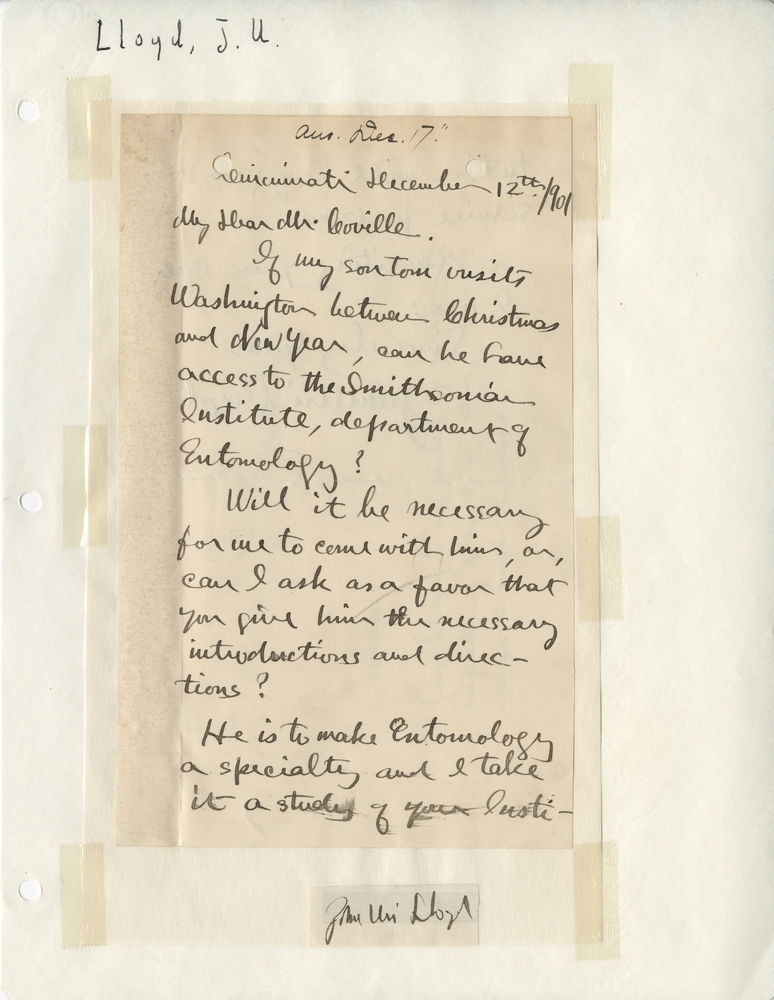 Lloyd, J. U.
Ans. Dec. 17."
Cincinnati December 12th/901
My Dear Mr. Coville.
If my son tom visits
Washington between Christmas
and New Year, can he have
access to the Smithsonian
Institute, department of
Entomology?
Will it be necessary
for me to come with him, or,
can I ask as a favor that
you give him the necessary
introductions and direc-
tions?
He is to make Entomology
a specialty and I take
it a study of your Insti-
John Uri Lloyd